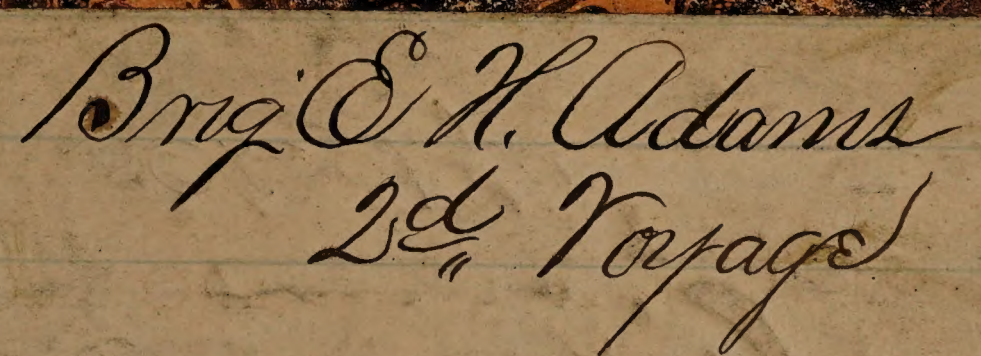 Brig E H. Adams
2d Voyage